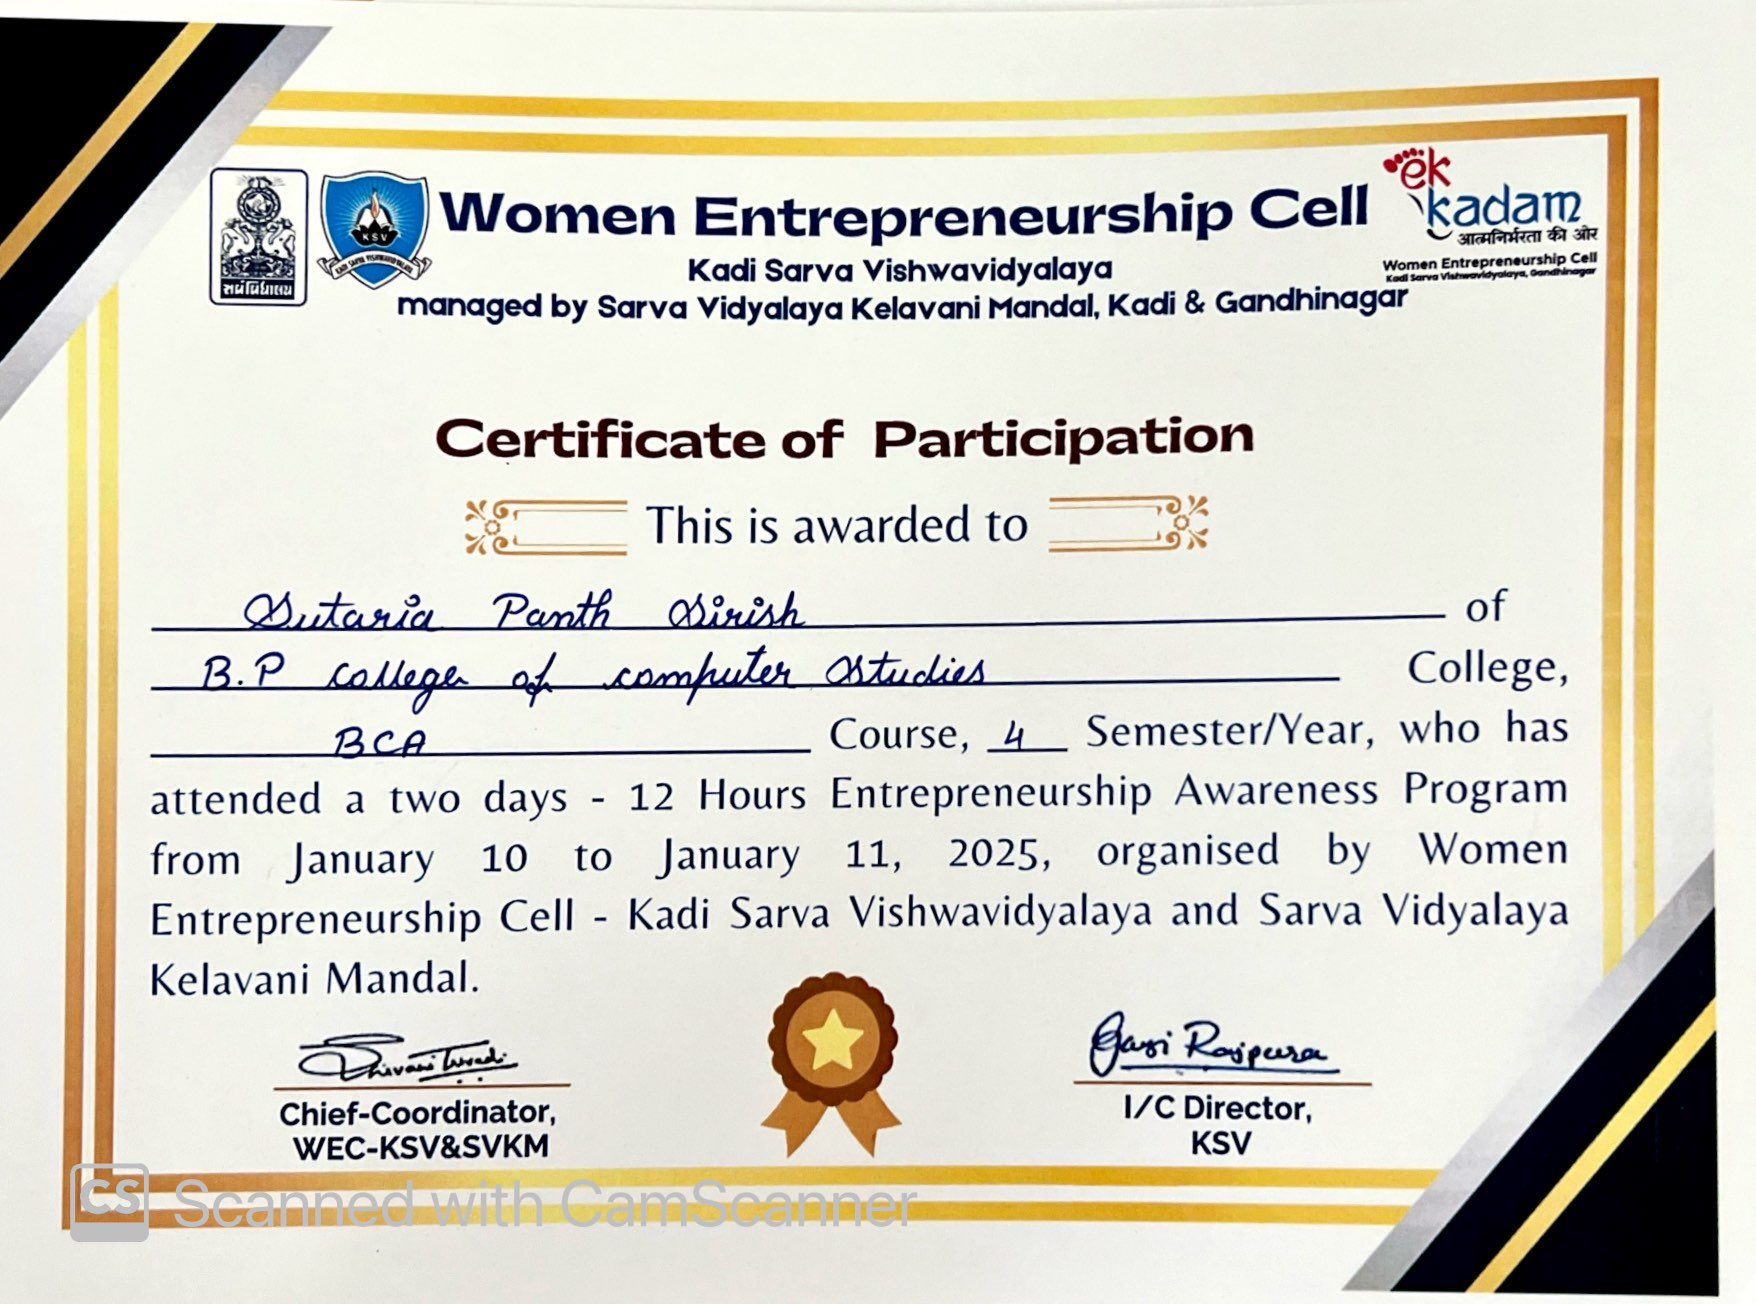 Women Entrepreneurship Cell
Kadi Sarva Vishwavidyalaya
managed by Sarva Vidyalaya Kelavani Mandal, Kadi & Gandhinagar
KSV
KADI SARVA VISHWAVIDYALAYA
ek
kadam
आत्मनिर्भरता की ओर
Women Entrepreneurship Cell
Kadi Sarva Vishwavidyalaya, Gandhinagar
Certificate of Participation
This is awarded to
Sutaria Panth Sirish of
B.P College of computer Studies College,
BCA Course, 4 Semester/Year, who has
attended a two days - 12 Hours Entrepreneurship Awareness Program
from January 10 to January 11, 2025, organised by Women
Entrepreneurship Cell - Kadi Sarva Vishwavidyalaya and Sarva Vidyalaya
Kelavani Mandal.
Shivani Trivedi
Chief-Coordinator,
WEC-KSV&SVKM
Rajpura
I/C Director,
KSV
CS Scanned with CamScanner